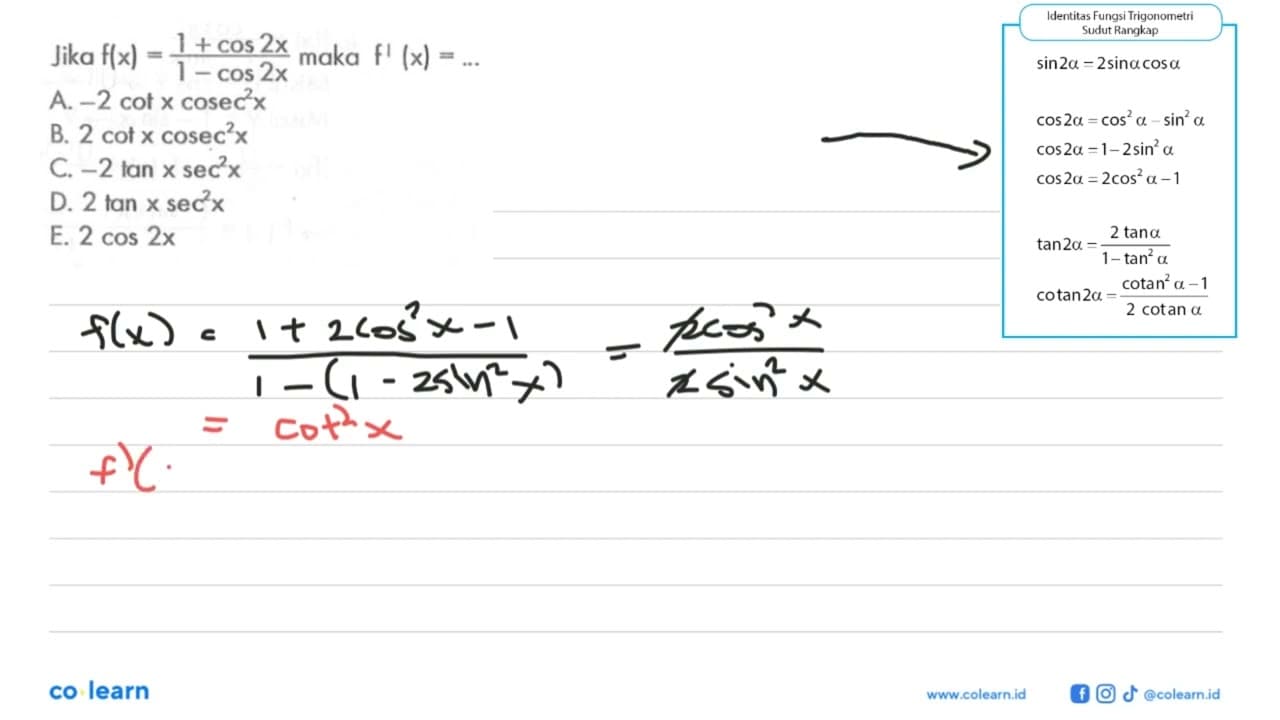 Jika f(x) = (1 + cos 2x)/(1 – cos 2x) maka f' (x) = ...
A. –2 cot x cosec²x
B. 2 cot x cosec²x
C. –2 tan x sec²x
D. 2 tan x sec²x
E. 2 cos 2x
Identitas Fungsi Trigonometri
Sudut Rangkap
sin2α = 2sinαcosα
cos2α = cos² α – sin² α
cos2α = 1–2sin² α
cos2α = 2cos² α –1
tan2α = (2 tanα)/(1–tan² α)
cotan2α = (cotan² α –1)/(2 cotan α)
f(x) = (1 + 2cos²x – 1)/(1 – (1 – 2sin²x)) = (2cos²x)/(2sin²x)
= cot²x
f'(
co learn
www.colearn.id
@colearn.id